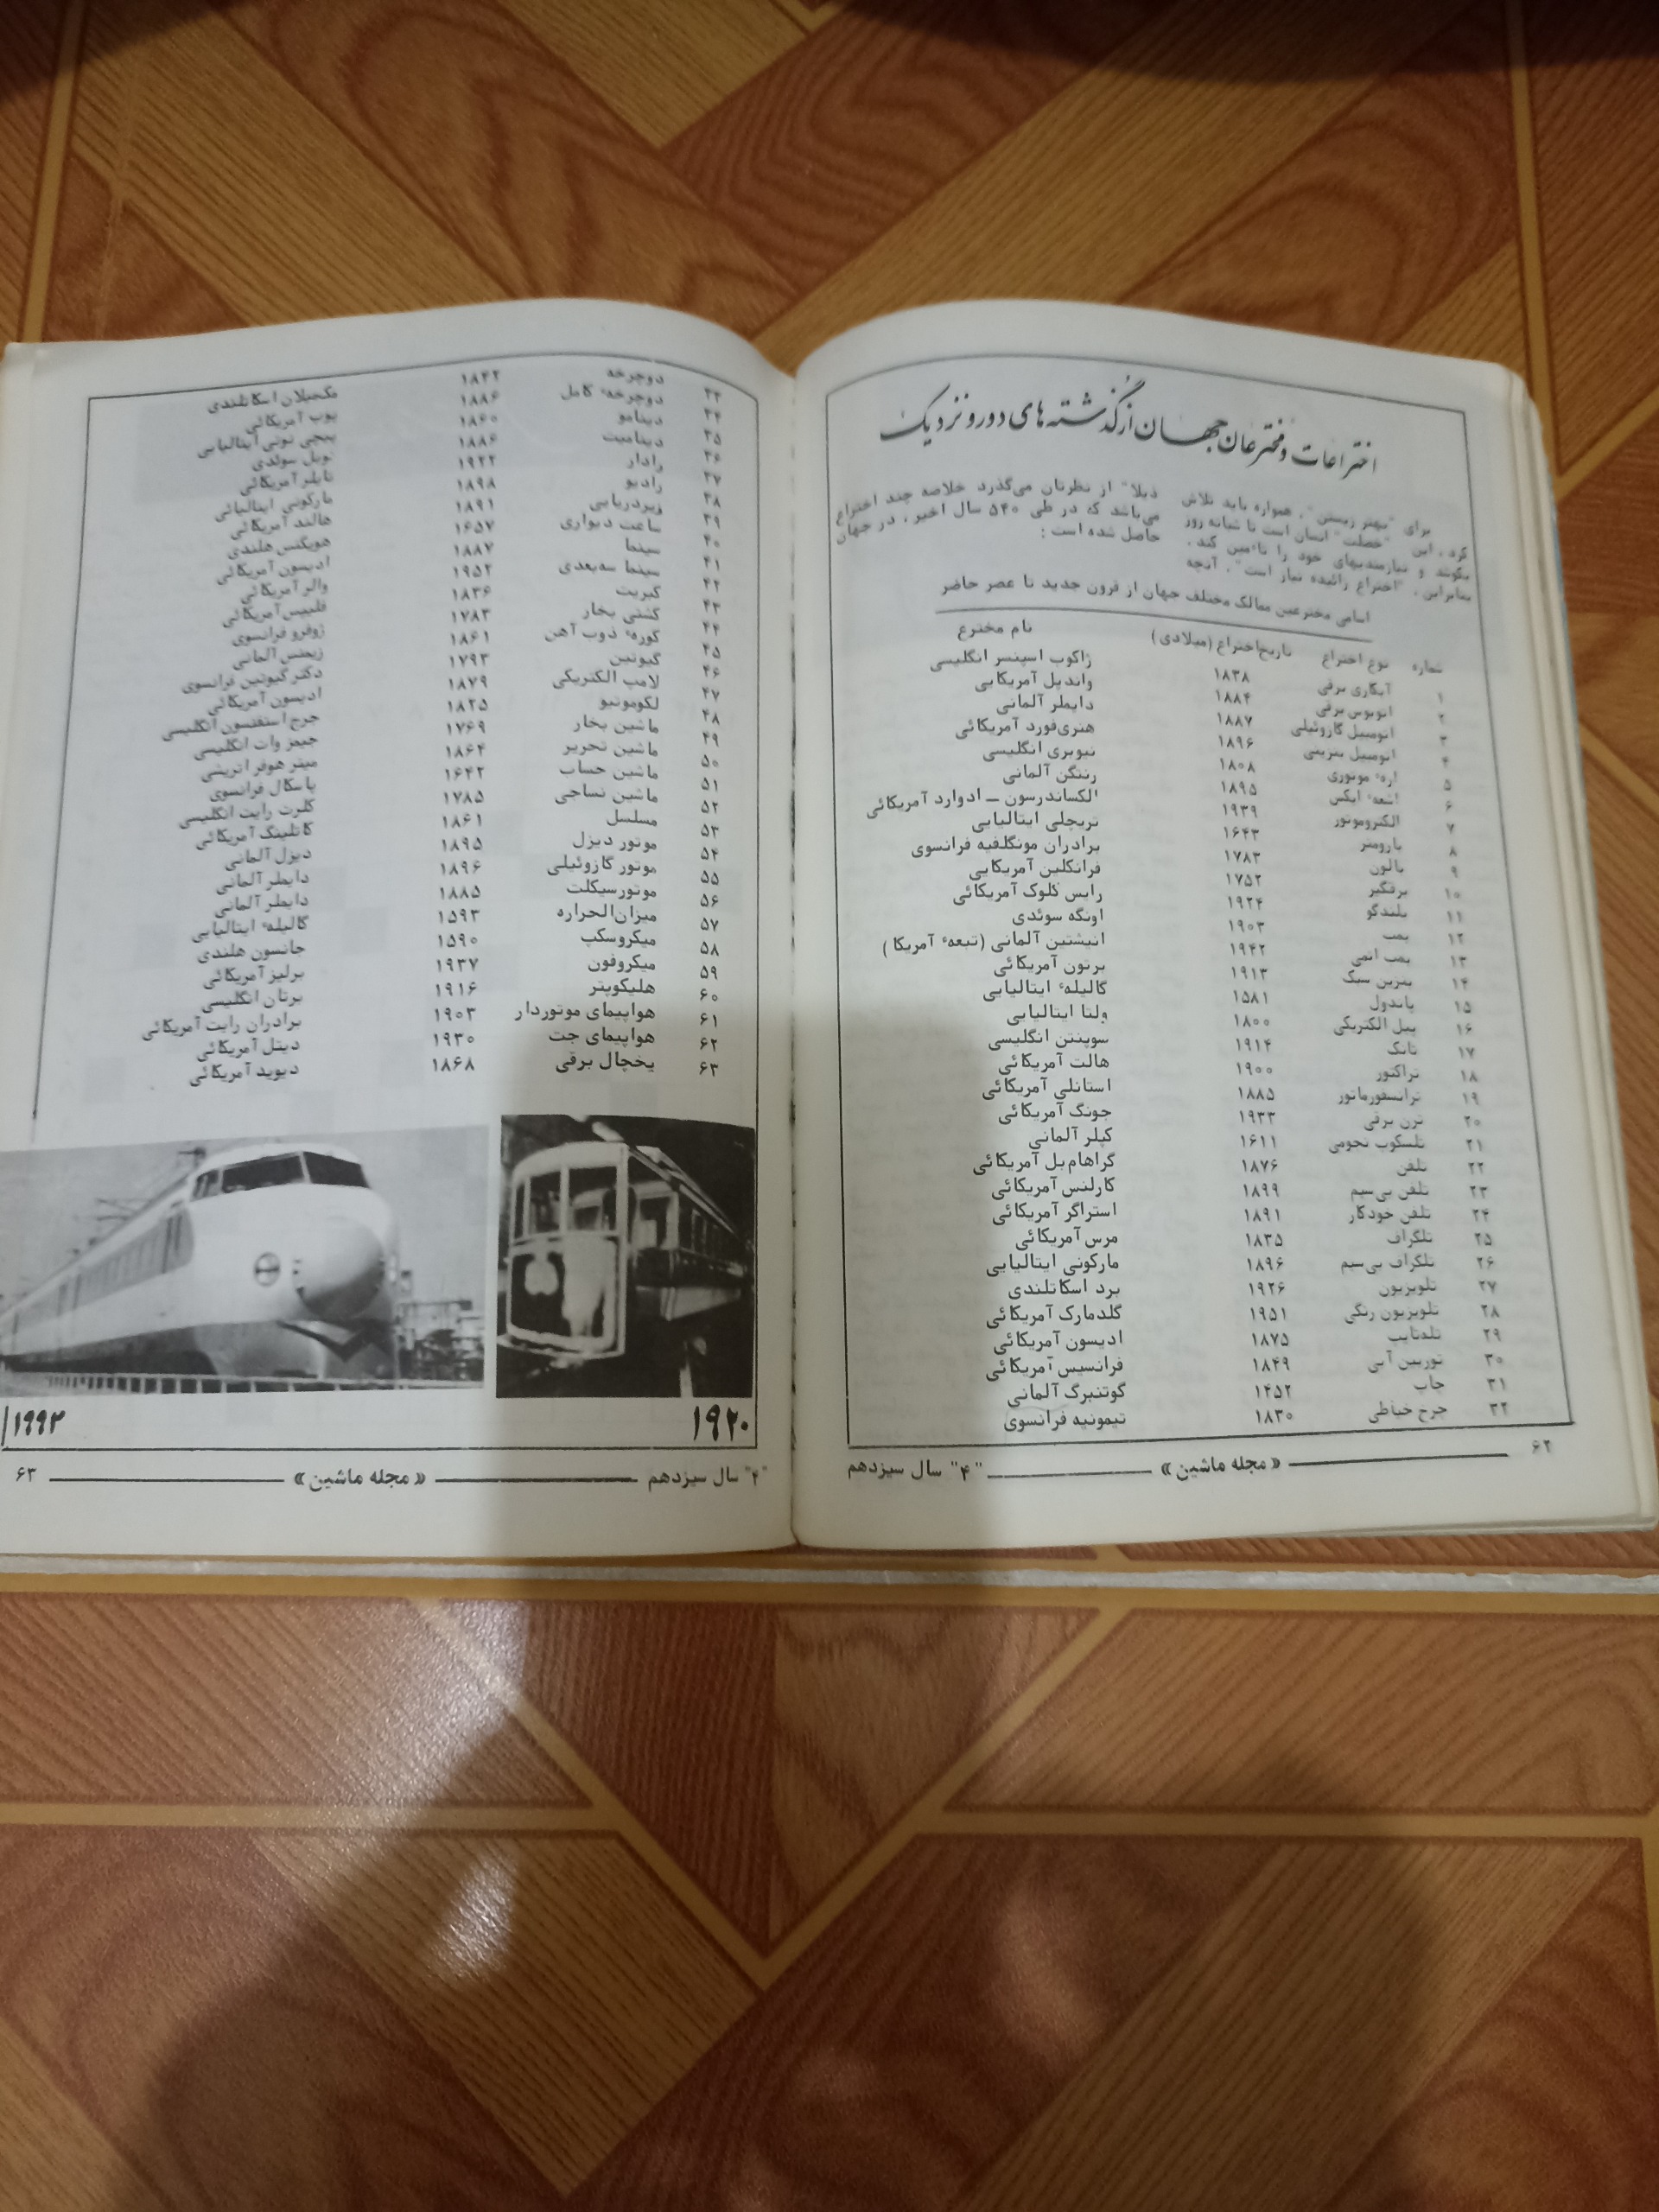 اختراعات و مخترعان جهان از گذشته‌های دور و نزدیک
برای "بهتر زیستن"، همواره باید تلاش
کرد، این "خصلت" انسان است تا شبانه روز
بکوشد و نیازمندیهای خود را تاءمین کند.
بنابراین، "اختراع زائیده نیاز است". آنچه
ذیلا" از نظرتان می‌گذرد خلاصه چند اختراع
می‌باشد که در طی ۵۴۰ سال اخیر، در جهان
حاصل شده است:
اسامی مخترعین ممالک مختلف جهان از قرون جدید تا عصر حاضر
شماره نوع اختراع تاریخ اختراع (میلادی) نام مخترع
۱ آبکاری برقی ۱۸۳۸ ژاکوب اسپنسر انگلیسی
۲ اتوبوس برقی ۱۸۸۴ واندپل آمریکایی
۳ اتومبیل گازوئیلی ۱۸۸۷ دایملر آلمانی
۴ اتومبیل بنزینی ۱۸۹۶ هنری‌فورد آمریکائی
۵ اره موتوری ۱۸۰۸ نیوبری انگلیسی
۶ اشعه ایکس ۱۸۹۵ رنتگن آلمانی
۷ الکتروموتور ۱۹۳۹ الکساندرسون ــ ادوارد آمریکائی
۸ بارومتر ۱۶۴۳ تریچلی ایتالیایی
۹ بالون ۱۷۸۳ برادران مونگلفیه فرانسوی
۱۰ برقگیر ۱۷۵۲ فرانکلین آمریکایی
۱۱ بلندگو ۱۹۲۴ رایس کلوک آمریکائی
۱۲ بمب ۱۹۰۳ اونگه سوئدی
۱۳ بمب اتمی ۱۹۴۲ انیشتین آلمانی (تبعهٔ آمریکا)
۱۴ بنزین سبک ۱۹۱۳ برتون آمریکائی
۱۵ پاندول ۱۵۸۱ گالیلهٔ ایتالیایی
۱۶ پیل الکتریکی ۱۸۰۰ ولتا ایتالیایی
۱۷ تانک ۱۹۱۴ سوینتن انگلیسی
۱۸ تراکتور ۱۹۰۰ هالت آمریکائی
۱۹ ترانسفورماتور ۱۸۸۵ استانلی آمریکائی
۲۰ ترن برقی ۱۹۳۳ جونگ آمریکائی
۲۱ تلسکوپ نجومی ۱۶۱۱ کپلر آلمانی
۲۲ تلفن ۱۸۷۶ گراهام‌بل آمریکائی
۲۳ تلفن بی‌سیم ۱۸۹۹ کارلنس آمریکائی
۲۴ تلفن خودکار ۱۸۹۱ استراگر آمریکائی
۲۵ تلگراف ۱۸۳۵ مرس آمریکائی
۲۶ تلگراف بی‌سیم ۱۸۹۶ مارکونی ایتالیایی
۲۷ تلویزیون ۱۹۲۶ برد اسکاتلندی
۲۸ تلویزیون رنگی ۱۹۵۱ گلدمارک آمریکائی
۲۹ تلدتایپ ۱۸۷۵ ادیسون آمریکائی
۳۰ توربین آبی ۱۸۴۹ فرانسیس آمریکائی
۳۱ چاپ ۱۴۵۲ گوتنبرگ آلمانی
۳۲ چرخ خیاطی ۱۸۳۰ تیمونیه فرانسوی
"۴" سال سیزدهم «مجله ماشین» ۶۲
۳۳ دوچرخه ۱۸۴۲ مک‌میلان اسکاتلندی
۳۴ دوچرخهٔ کامل ۱۸۸۶ پوپ آمریکائی
۳۵ دینامو ۱۸۶۰ پیچی نوتی ایتالیایی
۳۶ دینامیت ۱۸۸۶ نوبل سوئدی
۳۷ رادار ۱۹۲۲ تایلر آمریکائی
۳۸ رادیو ۱۸۹۸ مارکونی ایتالیائی
۳۹ زیردریایی ۱۸۹۱ هالند آمریکائی
۴۰ ساعت دیواری ۱۶۵۷ هویگنس هلندی
۴۱ سینما ۱۸۸۷ ادیسون آمریکائی
۴۲ سینما سه‌بعدی ۱۹۵۲ والر آمریکائی
۴۳ کبریت ۱۸۳۶ فلیپس آمریکائی
۴۴ کشتی بخار ۱۷۸۳ ژوفرو فرانسوی
۴۵ کورهٔ ذوب آهن ۱۸۶۱ زیمنس آلمانی
۴۶ گیوتین ۱۷۹۳ دکتر گیوتین فرانسوی
۴۷ لامپ الکتریکی ۱۸۷۹ ادیسون آمریکائی
۴۸ لکوموتیو ۱۸۲۵ جرج استفنسون انگلیسی
۴۹ ماشین بخار ۱۷۶۹ جیمز وات انگلیسی
۵۰ ماشین تحریر ۱۸۶۴ میتر هوفر اتریشی
۵۱ ماشین حساب ۱۶۴۲ پاسکال فرانسوی
۵۲ ماشین نساجی ۱۷۸۵ کلرت رایت انگلیسی
۵۳ مسلسل ۱۸۶۱ گاتلینگ آمریکائی
۵۴ موتور دیزل ۱۸۹۵ دیزل آلمانی
۵۵ موتور گازوئیلی ۱۸۹۶ دایملر آلمانی
۵۶ موتورسیکلت ۱۸۸۵ دایملر آلمانی
۵۷ میزان‌الحراره ۱۵۹۳ گالیلهٔ ایتالیایی
۵۸ میکروسکپ ۱۵۹۰ جانسون هلندی
۵۹ میکروفون ۱۹۳۷ برلیز آمریکائی
۶۰ هلیکوپتر ۱۹۱۶ برتان انگلیسی
۶۱ هواپیمای موتوردار ۱۹۰۳ برادران رایت آمریکائی
۶۲ هواپیمای جت ۱۹۳۰ دیتل آمریکائی
۶۳ یخچال برقی ۱۸۶۸ دیوید آمریکائی
۱۹۲۰
۱۹۹۲
"۴" سال سیزدهم «مجله ماشین» ۶۳